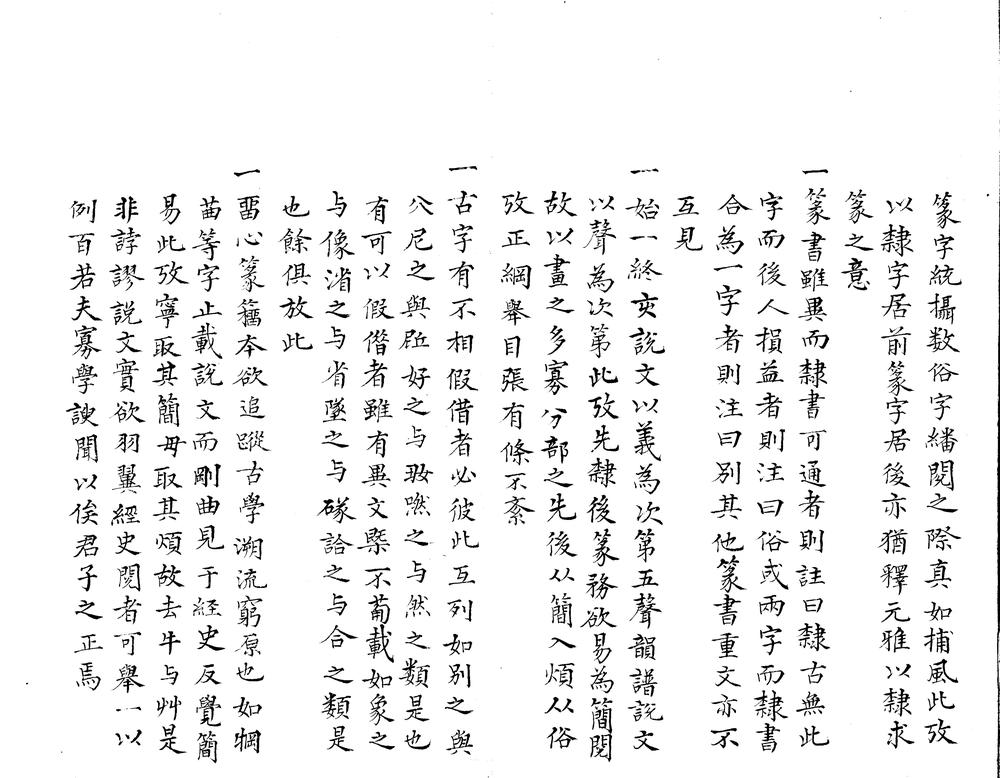 篆字統攝数俗字繙閱之際真如捕風此攷
以隸字居前篆字居後亦猶釋元雅以隸求
篆之意
一篆書雖異而隸書可通者則註曰隸古無此
字而後人損益者則注曰俗或兩字而隸書
合為一字者則注曰別其他篆書重文亦不
互見
一始一終亥說文以義為次第五聲韻譜說文
以聲為次第此攷先隸後篆務欲易為簡閱
故以畫之多寡分部之先後从簡入煩从俗
攷正綱舉目張有條不紊
一古字有不相假借者必彼此互列如別之與
㕣尼之與𡰥好之与𡚽㬗之与然之類是也
有可以假借者雖有異文槩不葡載如象之
与像渻之与省墜之与䃍詥之与合之類是
也餘俱放此
一畱心篆籒夲欲追蹤古學溯流窮原也如犅
苗等字止載說文而剛曲見于経史反覺簡
易此攷寧取其簡毋取其煩故去牛与艸是
非誖謬説文實欲羽翼經史閱者可舉一以
例百若夫寡學謏聞以俟君子之正焉